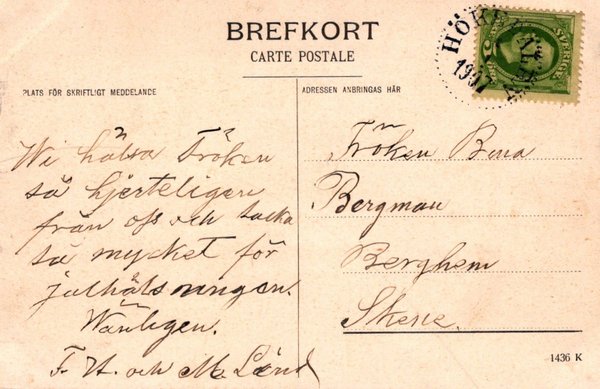 BREFKORT
CARTE POSTALE
PLATS FÖR SKRIFTLIGT MEDDELANDE
ADRESSEN ANBRINGAS HÄR
1907
SVERIGE
Wi hälsa Fröken
så hjerteligen
från oss och tacka
så mycket för
julhälsningen.
Wänligen.
F. H. och M.
Fröken
Bergman
Berghem
Skene.
1436 K